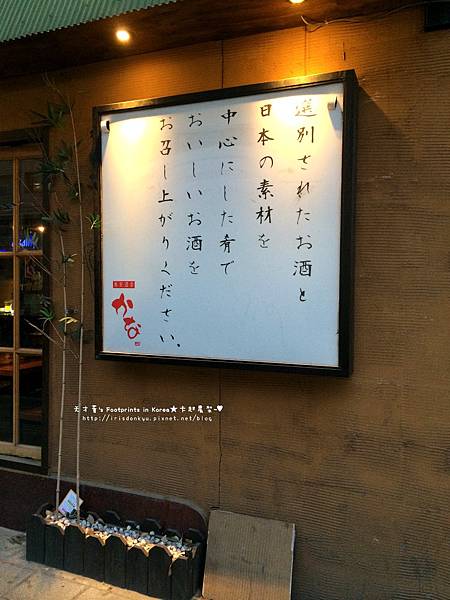 選別されたお酒と
日本の素材を
中心にした肴で
おいしいお酒を
お召し上がりください.
かむ
天才黃's Footprints in Korea★卡趴農莊~♥
http://irisdonkyu.pixnet.net/blog